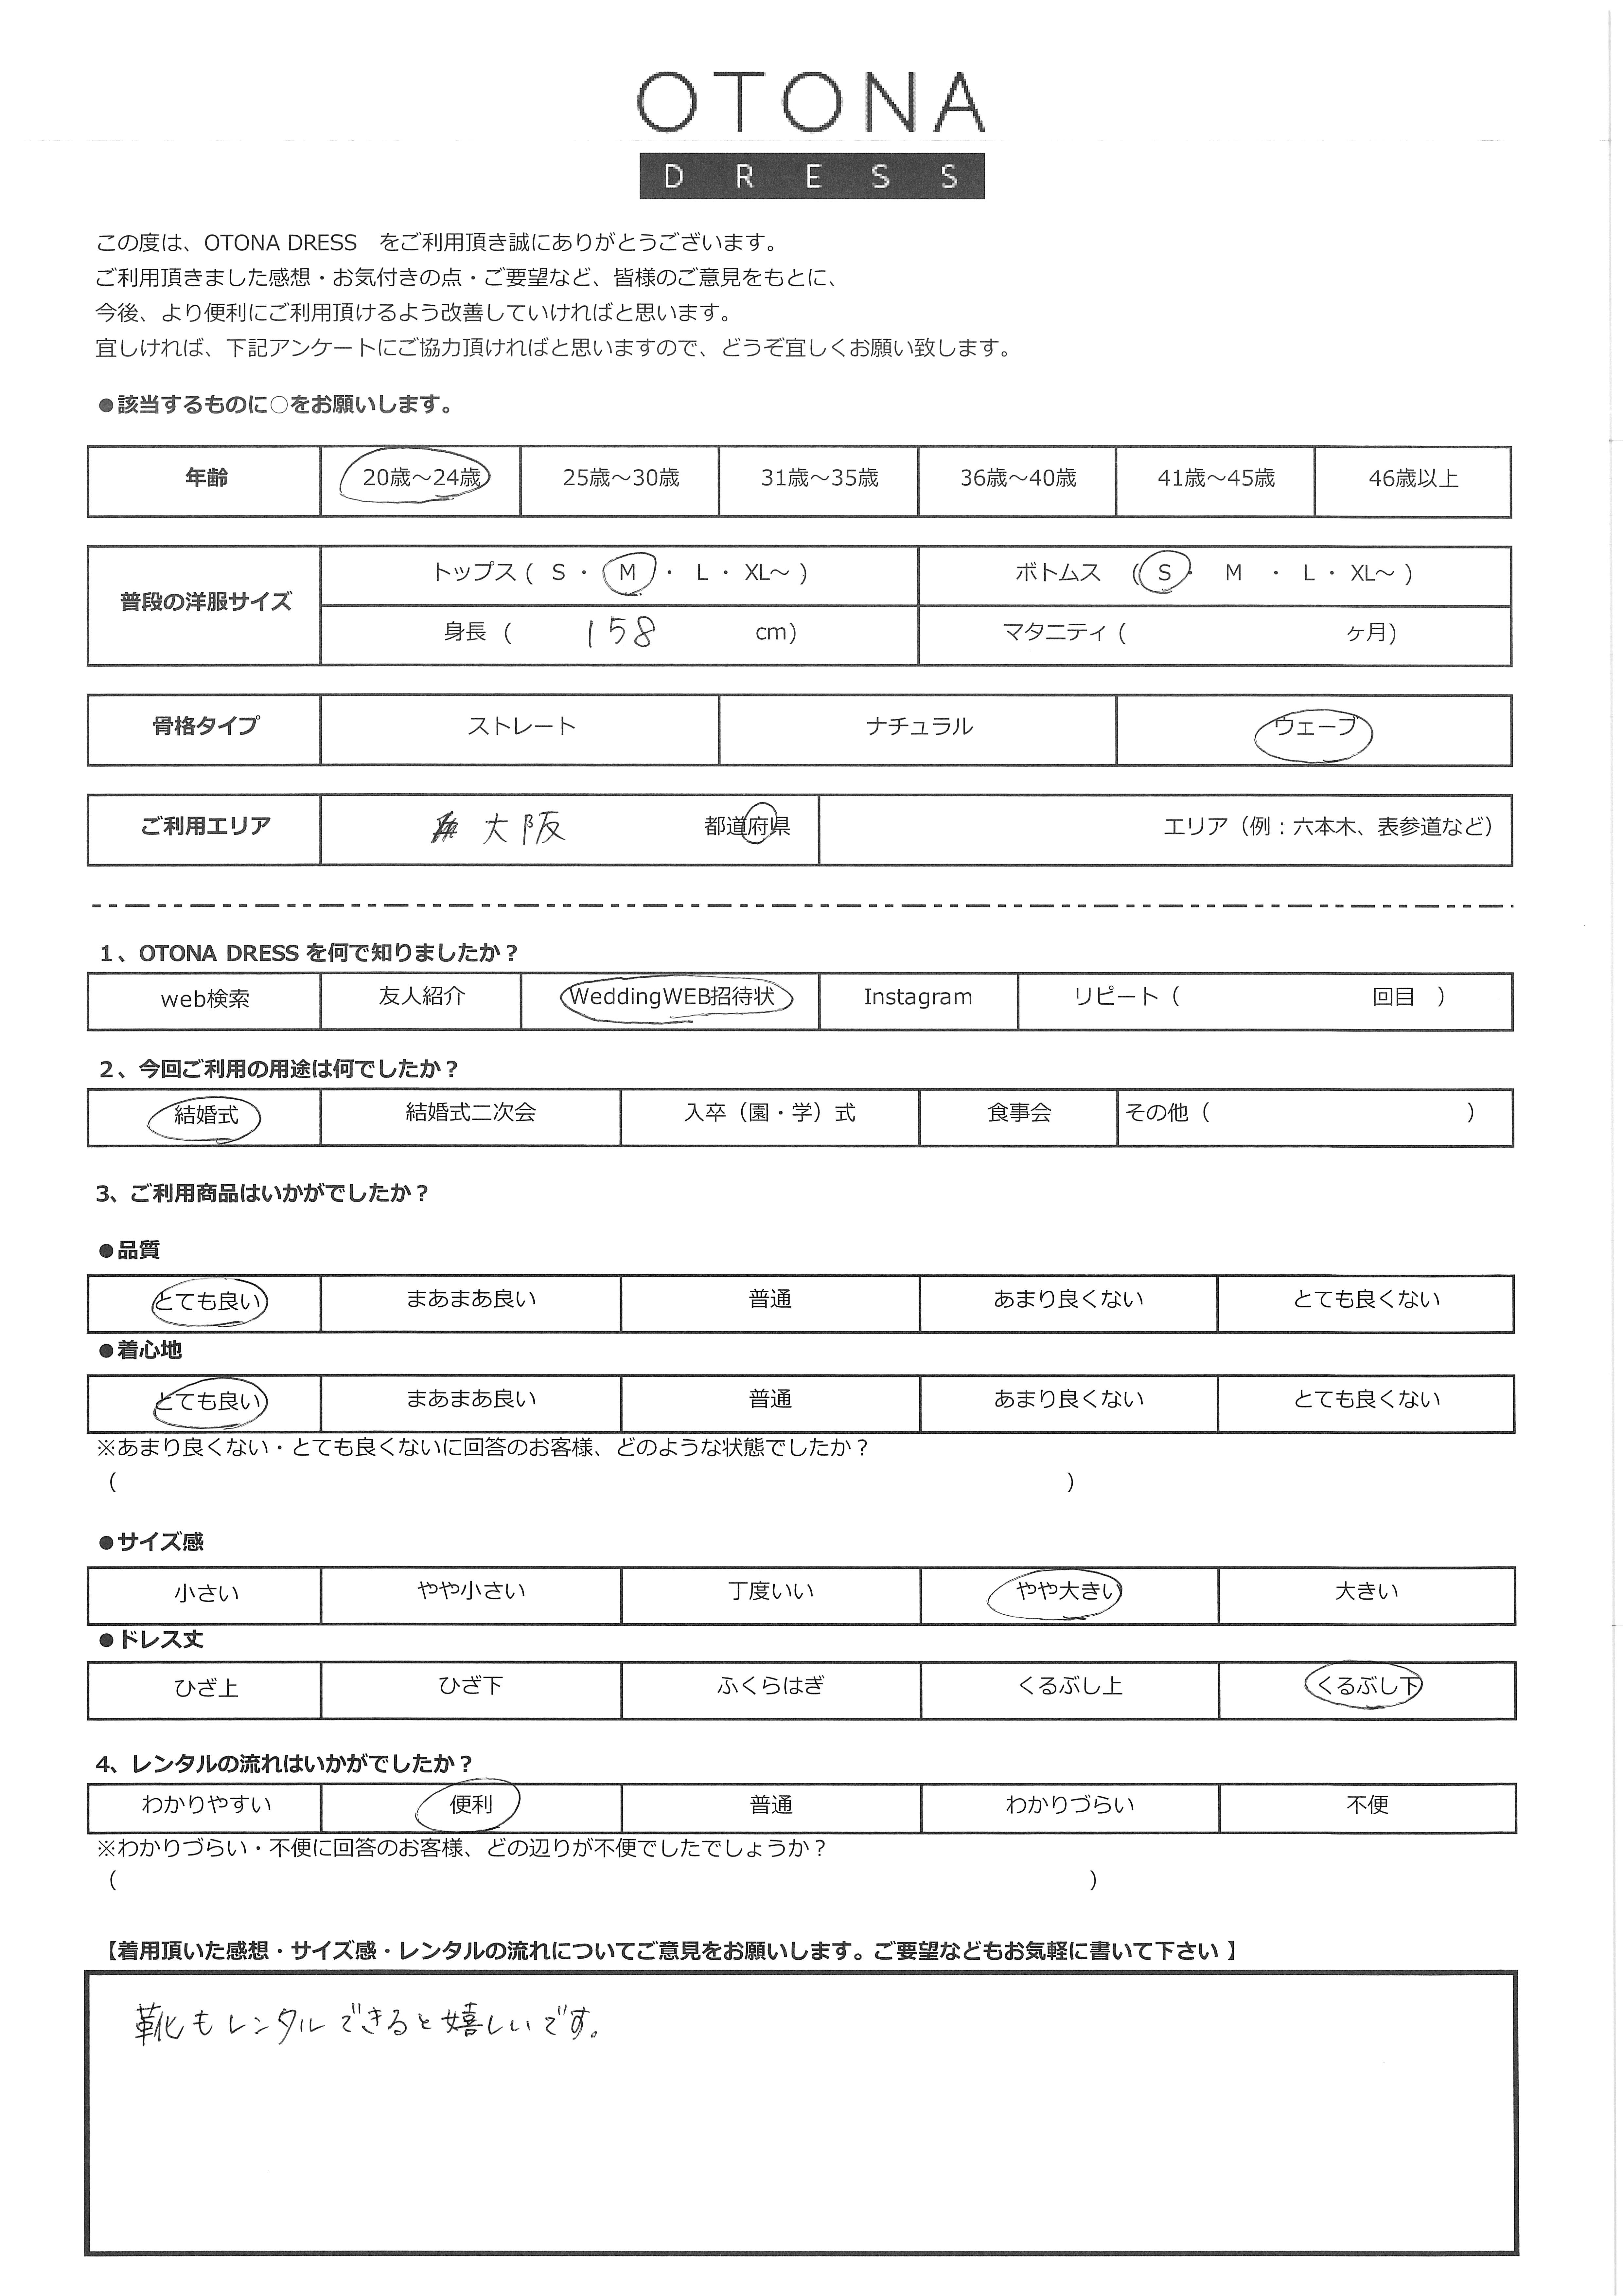 OTONA
DRESS
この度は、OTONA DRESS　をご利用頂き誠にありがとうございます。
ご利用頂きました感想・お気付きの点・ご要望など、皆様のご意見をもとに、
今後、より便利にご利用頂けるよう改善していければと思います。
宜しければ、下記アンケートにご協力頂ければと思いますので、どうぞ宜しくお願い致します。
●該当するものに○をお願いします。
年齢 20歳～24歳 25歳～30歳 31歳～35歳 36歳～40歳 41歳～45歳 46歳以上
普段の洋服サイズ
トップス ( S ・ M ・ L ・ XL～ ) ボトムス ( S ・ M ・ L ・ XL～ )
身長 ( 158 cm) マタニティ ( ヶ月)
骨格タイプ ストレート ナチュラル ウェーブ
ご利用エリア 大阪 都道府県 エリア（例：六本木、表参道など）
1、OTONA DRESS を何で知りましたか？
web検索 友人紹介 WeddingWEB招待状 Instagram リピート（ 回目 ）
2、今回ご利用の用途は何でしたか？
結婚式 結婚式二次会 入卒（園・学）式 食事会 その他（ ）
3、ご利用商品はいかがでしたか？
●品質
とても良い まあまあ良い 普通 あまり良くない とても良くない
●着心地
とても良い まあまあ良い 普通 あまり良くない とても良くない
※あまり良くない・とても良くないに回答のお客様、どのような状態でしたか？
（ ）
●サイズ感
小さい やや小さい 丁度いい やや大きい 大きい
●ドレス丈
ひざ上 ひざ下 ふくらはぎ くるぶし上 くるぶし下
4、レンタルの流れはいかがでしたか？
わかりやすい 便利 普通 わかりづらい 不便
※わかりづらい・不便に回答のお客様、どの辺りが不便でしたでしょうか？
（ ）
【着用頂いた感想・サイズ感・レンタルの流れについてご意見をお願いします。ご要望などもお気軽に書いて下さい 】
靴もレンタルできると嬉しいです。